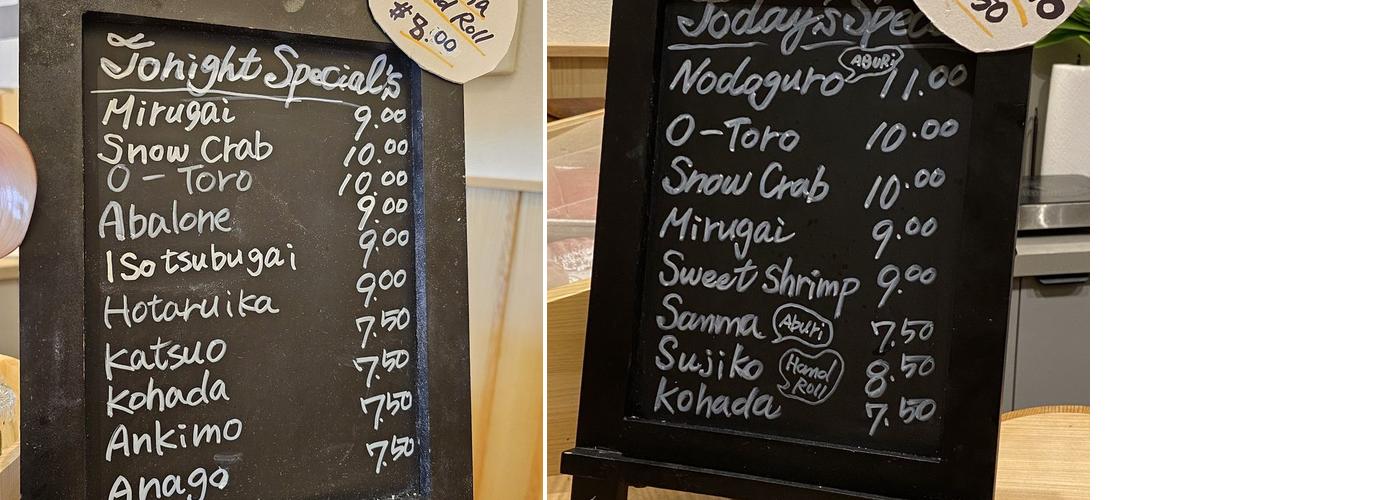 Roll
#8.00
Tonight Special's
Mirugai 9.00
Snow Crab 10.00
O-Toro 10.00
Abalone 9.00
Isotsubugai 9.00
Hotaruika 9.00
Katsuo 7.50
Kohada 7.50
Ankimo 7.50
Anago 7.50
Today's Spec
Nodoguro ABURi 11.00
O-Toro 10.00
Snow Crab 10.00
Mirugai 9.00
Sweet shrimp 9.00
Sanma Aburi 7.50
Sujiko Hand Roll 8.50
Kohada 7.50